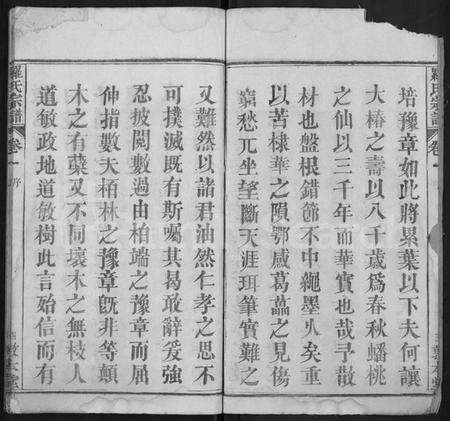 培豫章如此將累葉以下夫何讓
大椿之壽以八千歲爲春秋蟠桃
之仙以三千年而華實也哉予散
材也盤根錯節不中繩墨久矣重
以苦棣華之隕鄂感葛藟之見傷
窮愁兀坐望斷天涯珥筆實難之
又難然以諸君油然仁孝之思不
可撲滅既有斯囑其曷敢辭爰強
忍披閱數過由柏端之豫章而屈
伸指數夫栢林之豫章旣非等顛
木之有蘖又不同壞木之無枝人
道敏政地道敏樹此言殆信而有
羅氏宗譜
卷一
序
敦本堂